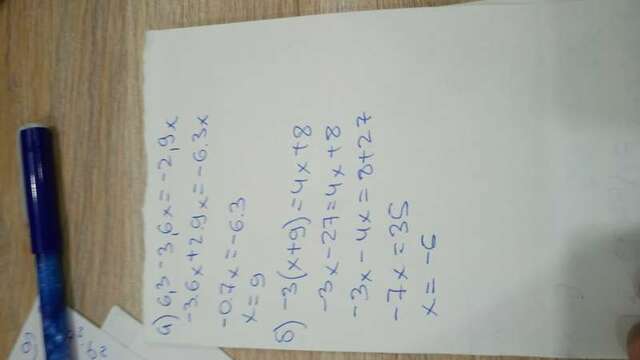 а) 6,3-3,6x=-2,9x
-3.6x+2.9x=-6.3x
-0.7x=-6.3
x=9
б) -3(x+9)=4x+8
-3x-27=4x+8
-3x-4x=8+27
-7x=35
x=-6